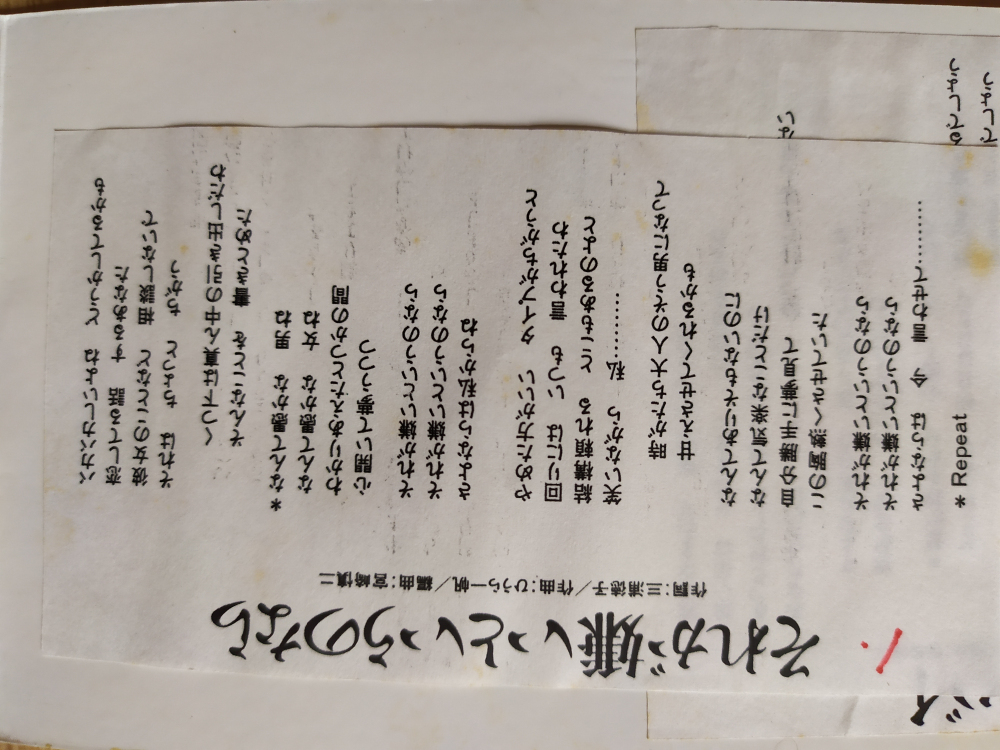 バイ
1.
それが嫌いというのなら
作詞：三浦徳子／作曲：ひうら一帆／編曲：宮崎慎二
バカバカしいよね　どうかしてるかも
恋してる話　するあなた
彼女のことなど　相談しないで
それは　ちょっと　ちがう
くつ下は真ん中の引き出しだわ
そんなことを　書きとめた
＊なんて愚かな　男ね
なんて愚かな　女ね
わかりあえたとつかの間
心開いて夢うつつ
それが嫌いというのなら
それが嫌いというのなら
さよならは私からね
やめた方がいい　タイプがちがうと
回りには　いつも　言われたわ
結構頼れる　とこもあるのよと
笑いながら　私………
時がたち大人のそう男になって
甘えさせてくれるかも
なんてありそもないのに
なんて気楽なことだけ
自分勝手に夢見て
この胸熱くさせていた
それが嫌いというのなら
それが嫌いというのなら
さよならは　今　言わせて………
＊Repeat
ない
るでしょう
でしょう